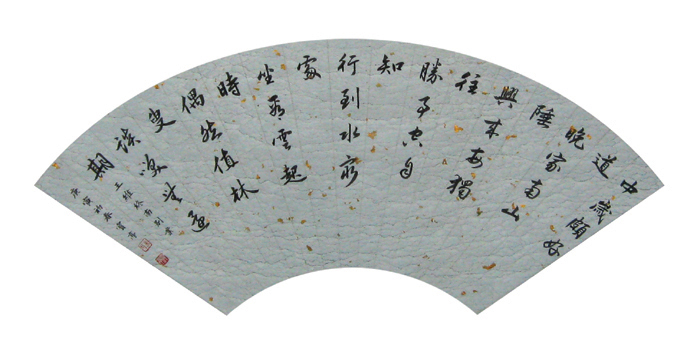 中歲頗好
道
晚家南山
陲
興來每獨
往
勝事空自
知
行到水窮
處
坐看雲起
時
偶然值林
叟
談笑無還
期
王維終南別業
庚寅初春